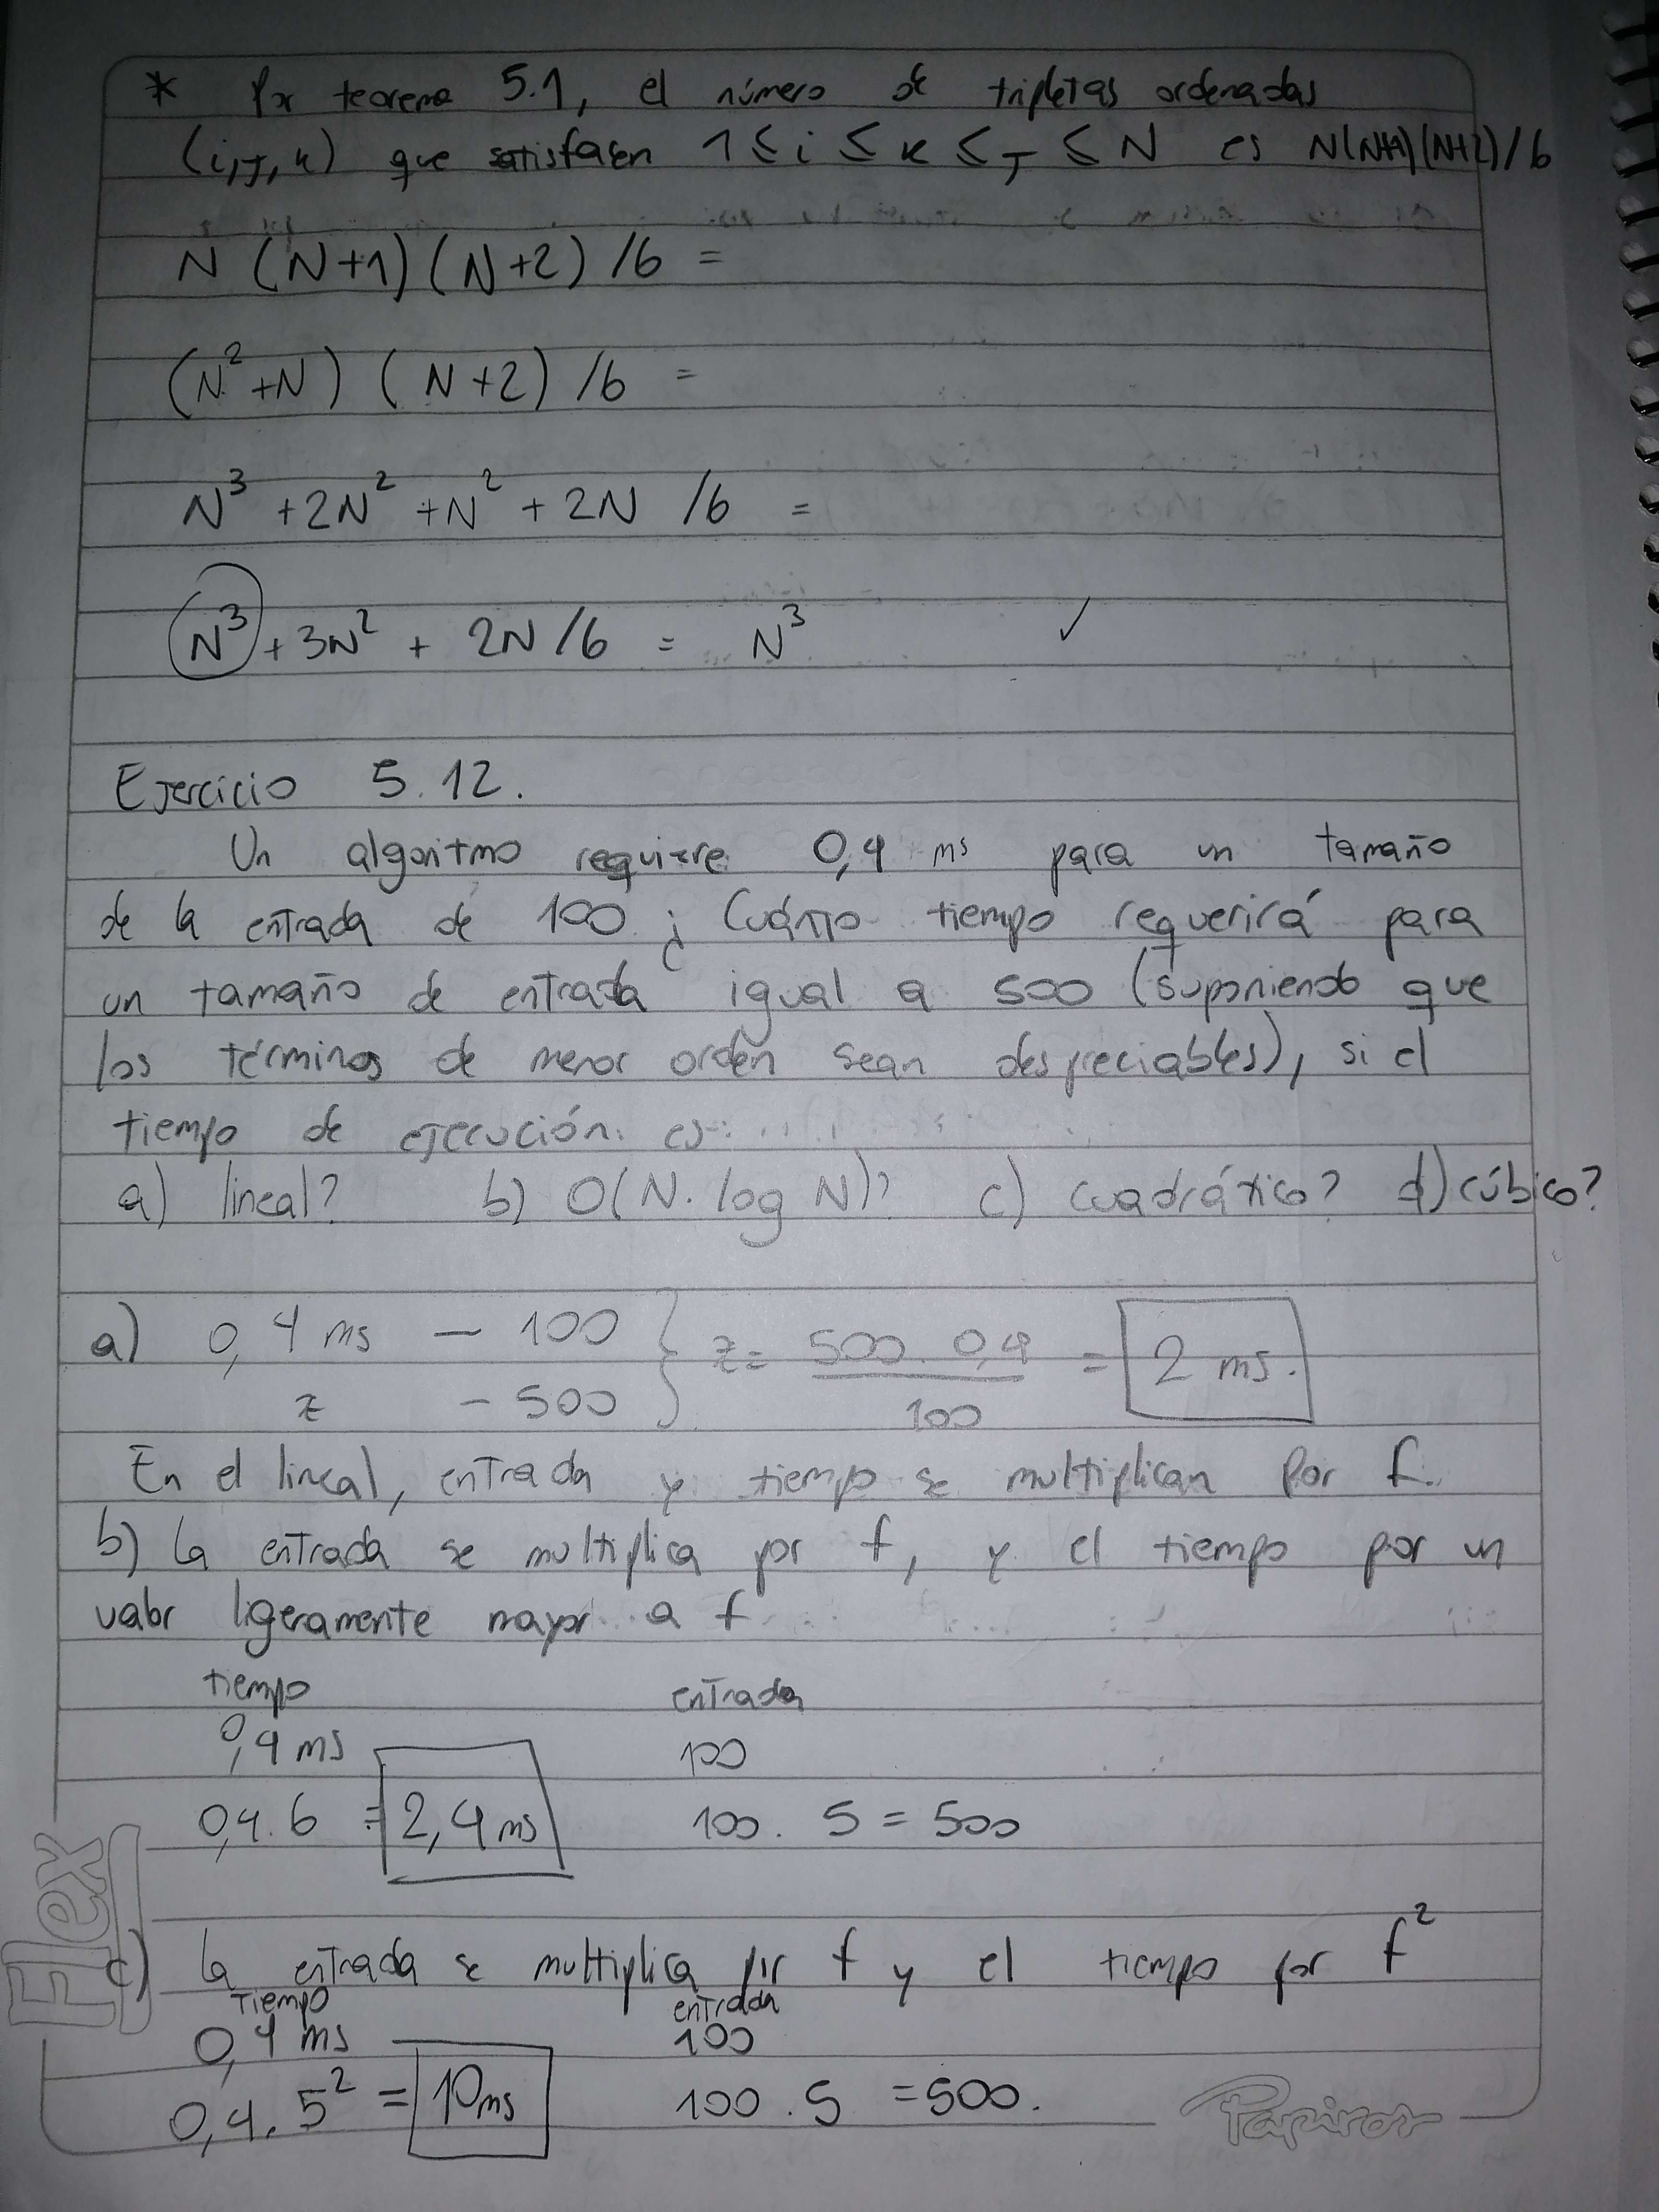 * Por teorema 5.1, el número de tripletas ordenadas
(i,j,k) que satisfacen 1 ≤ i ≤ k ≤ j ≤ N es N(N+1)(N+2)/6
N (N+1) (N+2) /6 =
(N² +N) (N+2) /6 =
N³ +2N² +N² + 2N /6 =
N³ +3N² + 2N/6 = N³ ✓
Ejercicio 5.12.
Un algoritmo requiere 0,4 ms para un tamaño
de la entrada de 100 ¿ Cuánto tiempo requerirá para
un tamaño de entrada igual a 500 (suponiendo que
los términos de menor orden sean despreciables), si el
tiempo de ejecución es
a) lineal? b) O(N. log N)? c) cuadrático? d) cúbico?
a) 0,4 ms — 100 } z = 500 . 0,4 / 100 = 2 ms.
z — 500
En el lineal, entrada y tiempo se multiplican por f.
b) la entrada se multiplica por f, y el tiempo por un
valor ligeramente mayor a f
tiempo entrada
0,4 ms 100
0,4.6 = 2,4 ms 100 . 5 = 500
c) la entrada se multiplica por f y el tiempo por f²
Tiempo entrada
0,4 ms 100
0,4. 5² = 10ms 100 . 5 = 500.
Flex
Papiros